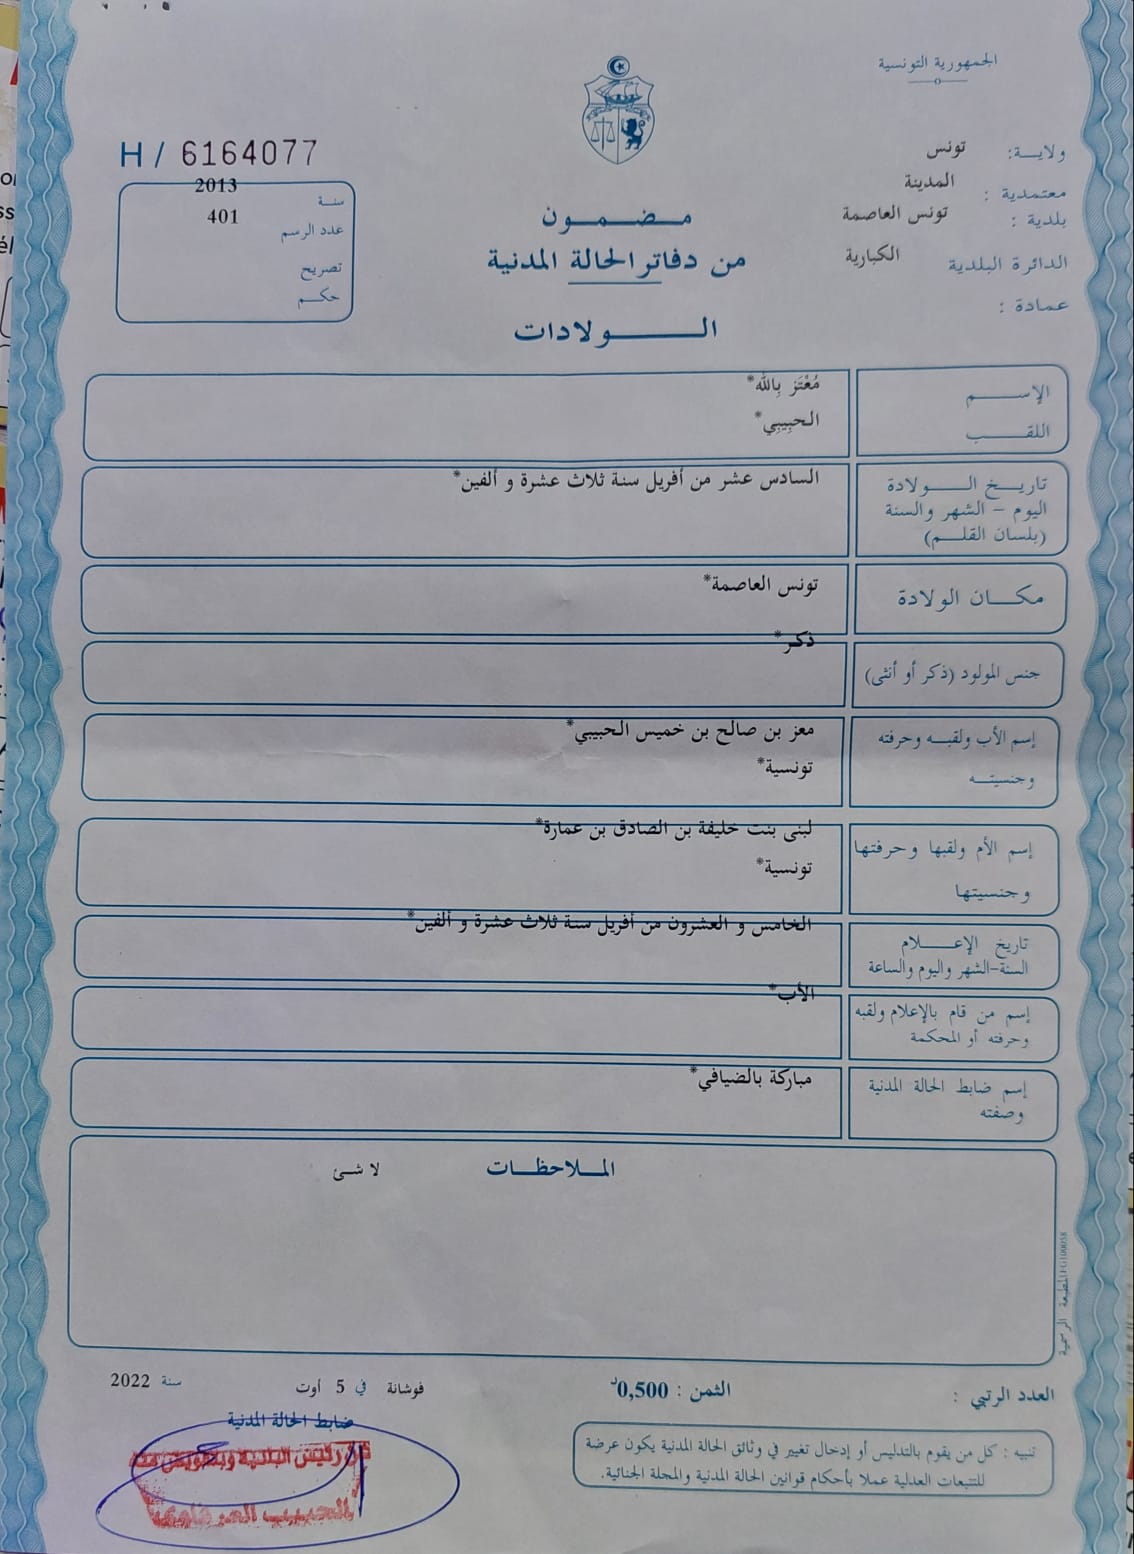 الجمهورية التونسية
ولاية: تونس
معتمدية : المدينة
بلدية : تونس العاصمة
الدائرة البلدية الكبارية
عمادة :
H / 6164077
سنة 2013
عدد الرسم 401
تصريح
حكم
مضمون
من دفاتر الحالة المدنية
الولادات
الإسم مُعْتَز بِالله*
اللقب الحبِيبِي*
تاريخ الولادة السادس عشر من أفريل سنة ثلاث عشرة و ألفين*
اليوم - الشهر والسنة
(بلسان القلم)
مكان الولادة تونس العاصمة*
ذكر*
جنس المولود (ذكر أو أنثى)
إسم الأب ولقبه وحرفته معز بن صالح بن خميس الحبيبي*
وجنسيته تونسية*
لبنى بنت خليفة بن الصادق بن عمارة*
إسم الأم ولقبها وحرفتها
وجنسيتها تونسية*
الخامس و العشرون من أفريل سنة ثلاث عشرة و ألفين*
تاريخ الإعلام
السنة-الشهر واليوم والساعة
الأب*
إسم من قام بالإعلام ولقبه
وحرفته أو المحكمة
إسم ضابط الحالة المدنية مباركة بالضيافي*
وصفته
الملاحظات لا شئ
المطبعة الرسمية
العدد الرتبي :
الثمن : 0,500د
فوشانة في 5 أوت سنة 2022
ضابط الحالة المدنية
عن رئيس البلدية وبتفويض منه
تنبيه : كل من يقوم بالتدليس أو إدخال تغيير في وثائق الحالة المدنية يكون عرضة
للتتبعات العدلية عملا بأحكام قوانين الحالة المدنية والمجلة الجنائية.